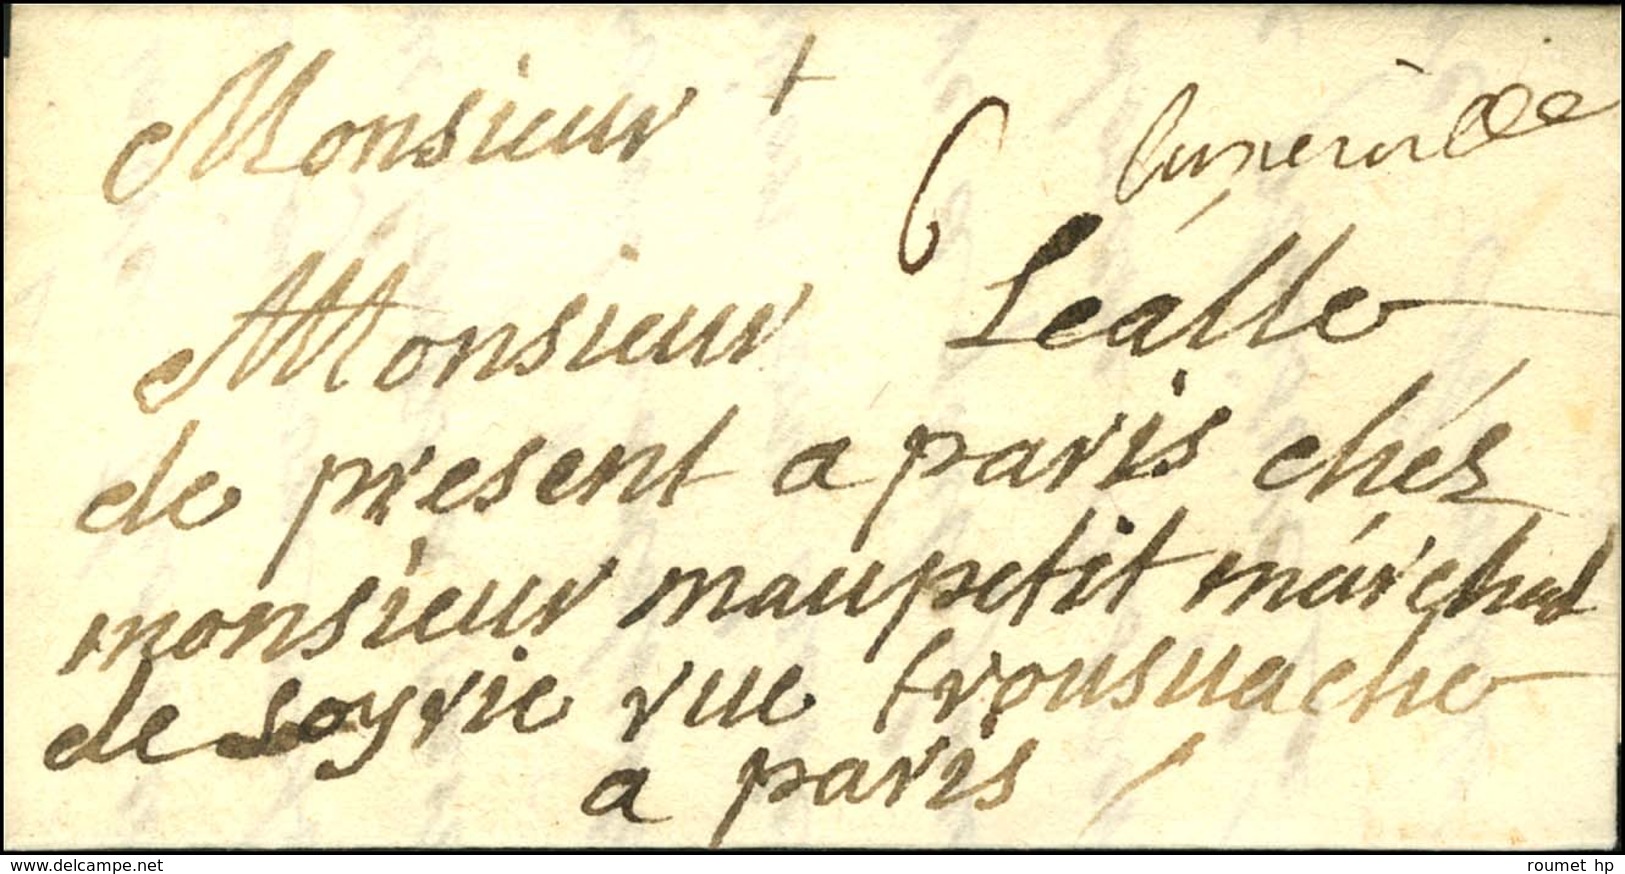 Monsieur
6 Luneville
Monsieur Leálle
de present a paris chéz
monsieur maupetit márchad
de soyrie rue trousuache
a paris
www.delcampe.net
roumet hp